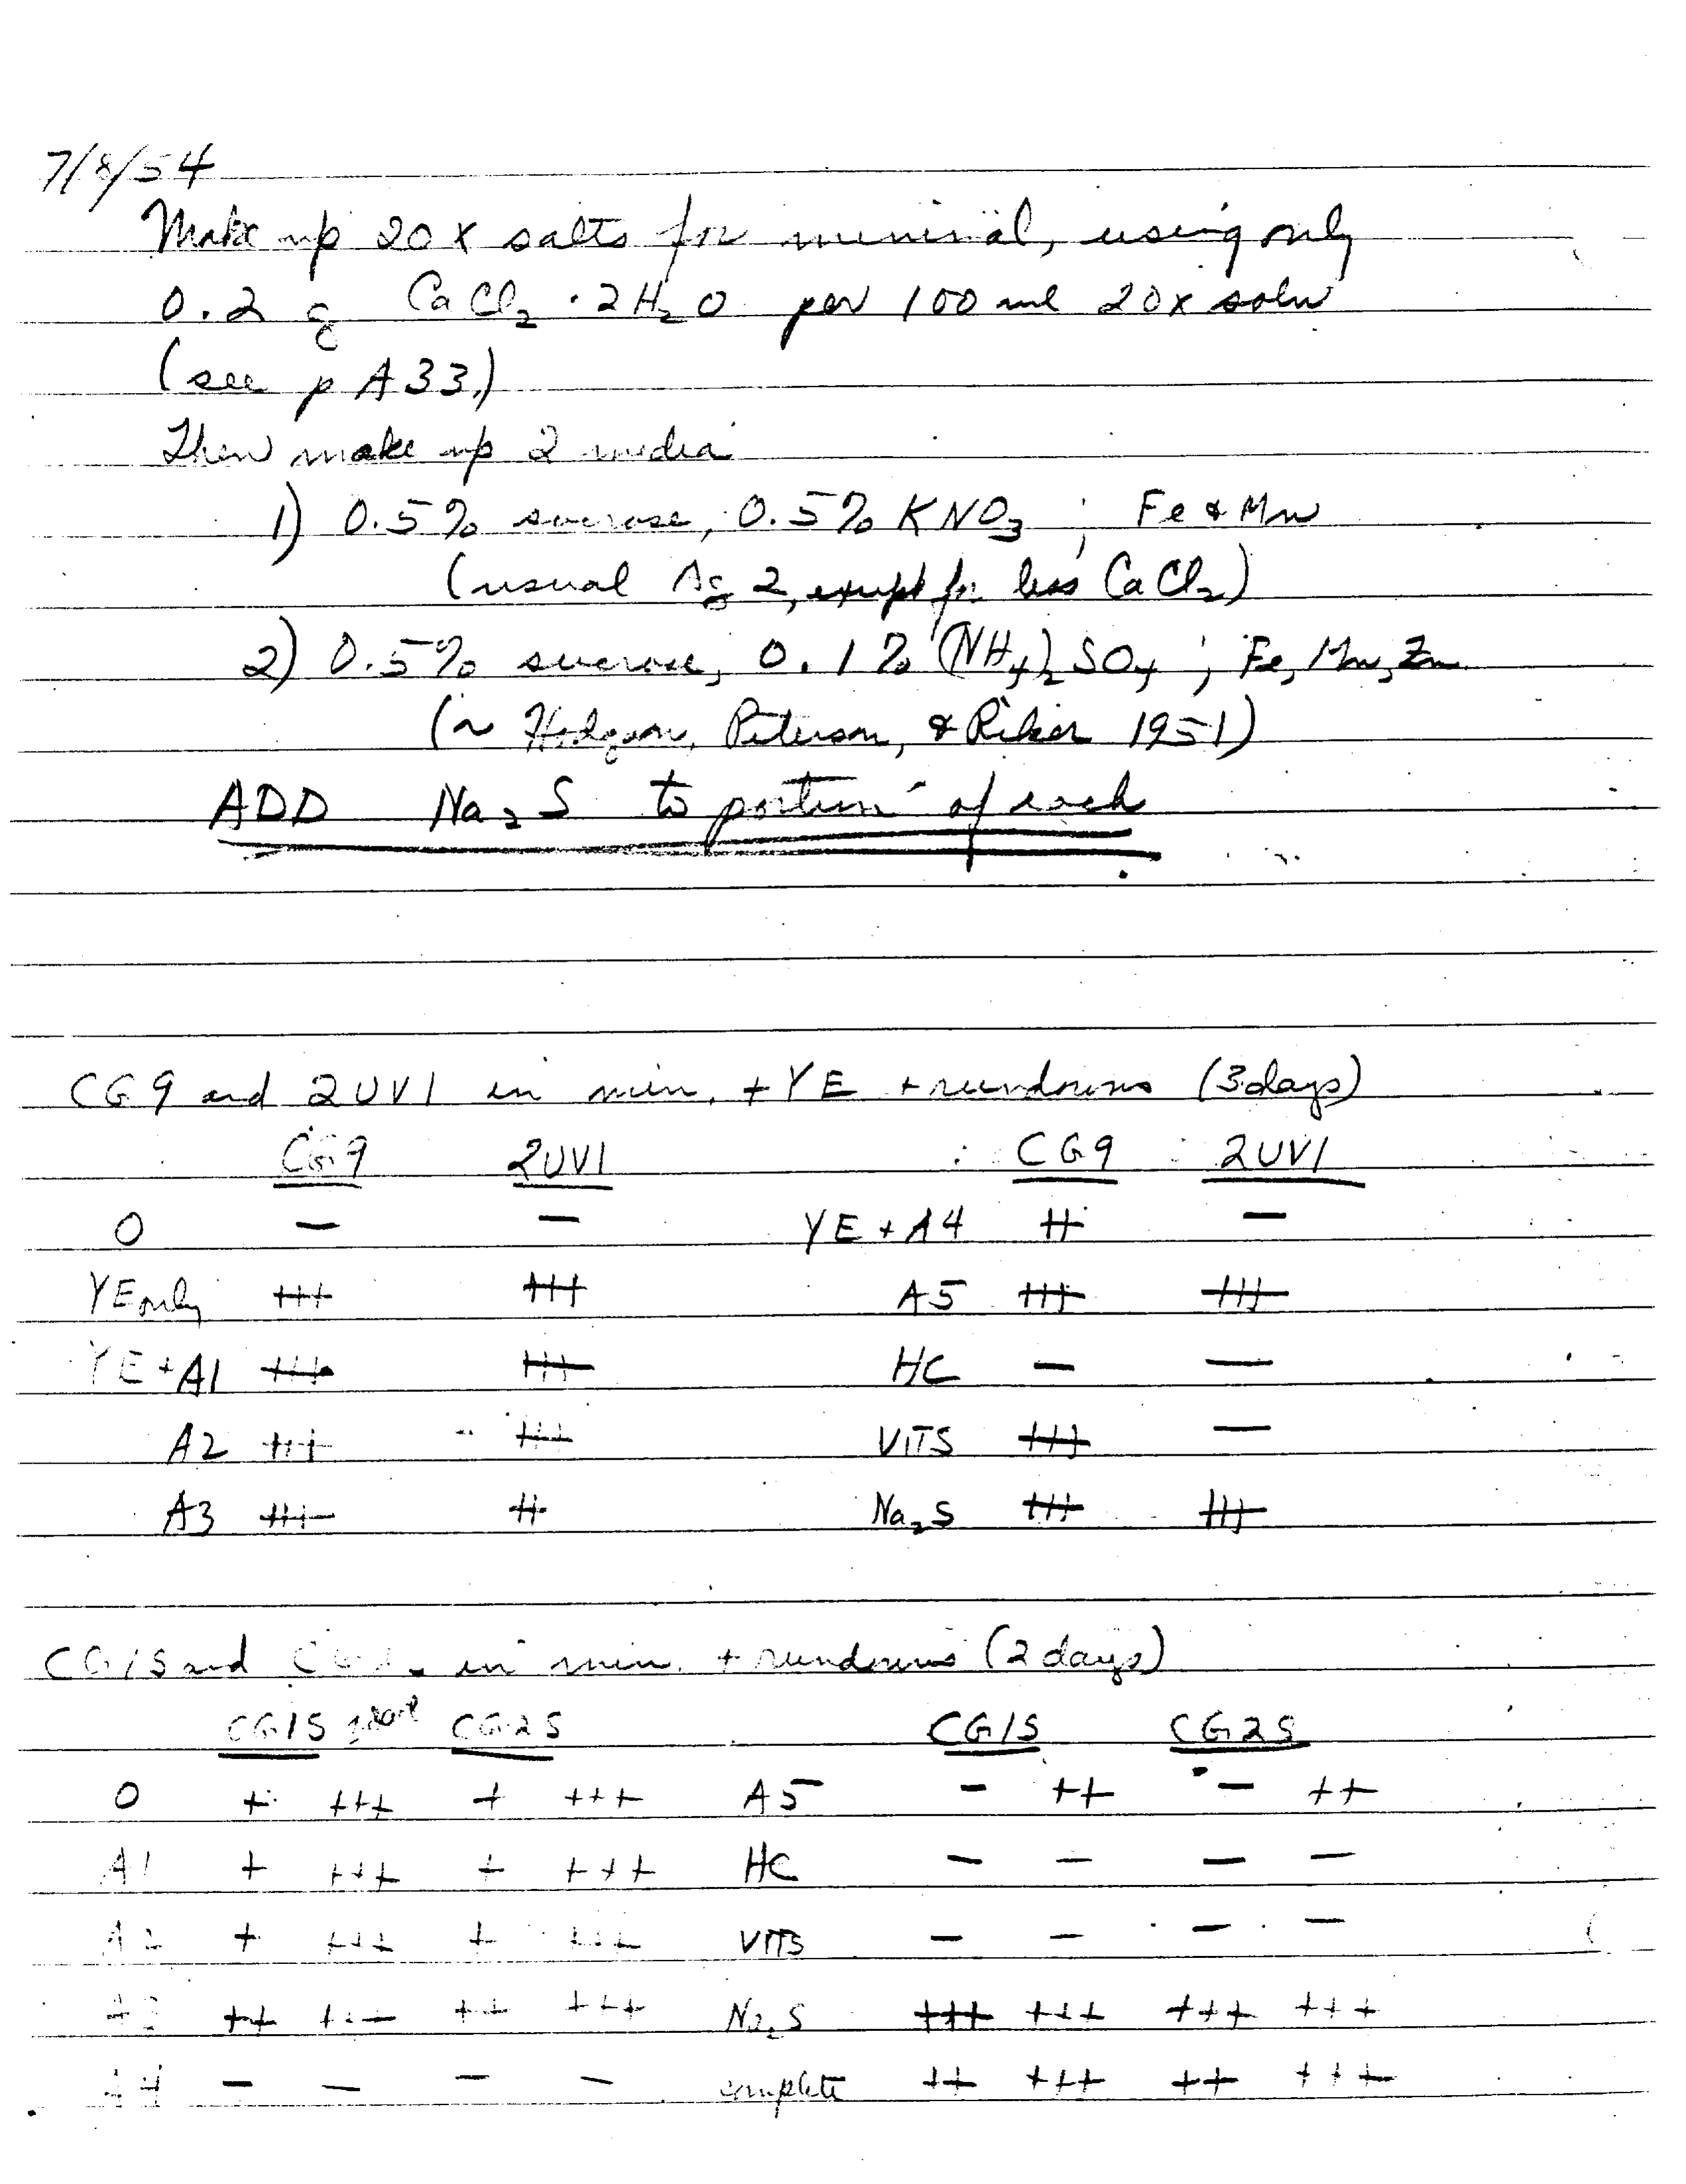 7/8/54
Make up 20x salts for minimal, using only
0.2 g CaCl2 · 2H2O per 100 ml 20x soln
(see p A33.)
Then make up 2 media
1) 0.5% sucrose, 0.5% KNO3; Fe & Mn
(usual Ag 2, except for less CaCl2)
2) 0.5% sucrose, 0.1% (NH4)2SO4; Fe, Mn, Zn
(~ Hodgson, Peterson, & Riker 1951)
ADD Na2S to portion of each
CG9 and 2UV1 in min. + YE + rundowns (3 days)
CG9 2UV1 CG9 2UV1
O — — YE + A4 ++ —
YE only +++ +++ A5 +++ +++
YE + A1 +++ +++ HC — —
A2 +++ +++ VITS +++ —
A3 +++ ++ Na2S +++ +++
CG1S and in min. + rundowns (2 days)
CG1S CG2S CG1S CG2S
O + +++ + +++ A5 - ++ - ++
A1 + +++ + +++ HC - - - -
A2 + +++ + +++ VITS - - - -
A3 ++ +++ ++ +++ Na2S +++ +++ +++ +++
A4 - - - - complete ++ +++ ++ +++